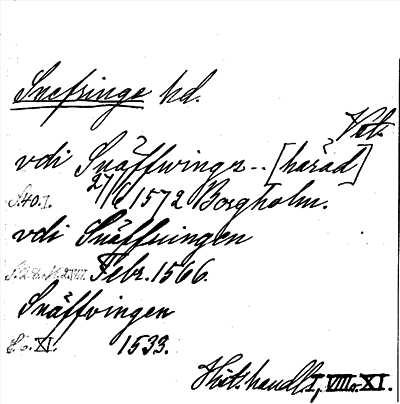 Snefringe hd.
Vet.
vdi Snäffwings.. [härad]
S. 40. I. 27/6 1572 Borgholm.
vdi Snäffningen
Febr. 1566.
Snäffvingen
E. 6. XI. 1533.
Hist. handl. I, VIII o. XI.